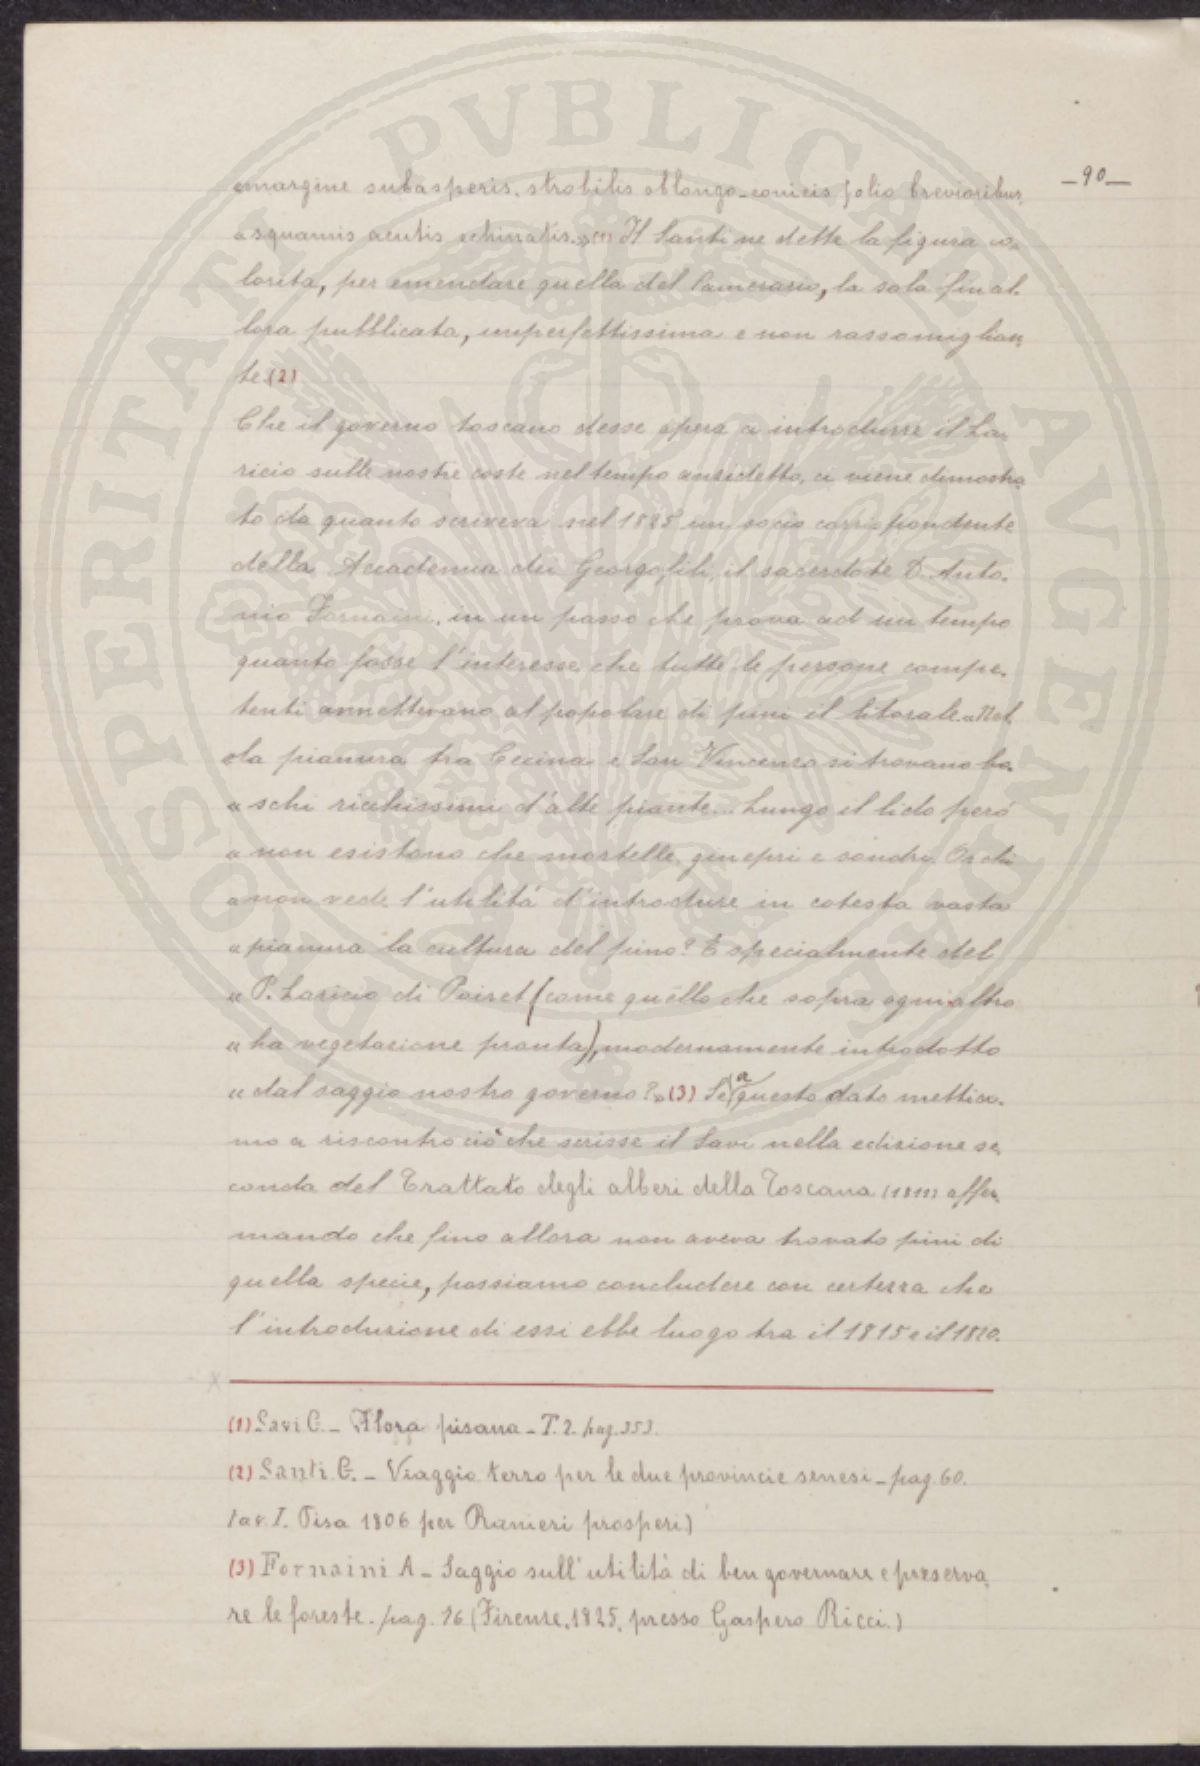 —90—
«margine subasperis, strobilis oblongo-conicis folio brevioribus,
«squamis acutis echinatis.» (1) Il Santi ne dette la figura co-
lorita, per emendare quella del Camerario, la sola fin al-
lora pubblicata, imperfettissima e non rassomiglian-
te.(2)
Che il governo toscano desse opera a introdurre il La-
ricio sulle nostre coste nel tempo anzidetto, ci viene dimostra-
to da quanto scriveva nel 1825 un socio corrispondente
della Accademia dei Georgofili, il sacerdote D. Anto-
nio Fornaini, in un passo che prova ad un tempo
quanto fosse l'interesse che tutte le persone compe-
tenti annettevano al popolare di pini il litorale. «Nel-
«la pianura tra Cecina e San Vincenzo si trovano bo-
« schi ricchissimi d'alte piante... Lungo il lido però
« non esistono che mortelle, ginepri e sondri. Or chi
« non vede l'utilità d'introdurre in cotesta vasta
« pianura la cultura del pino? E specialmente del
« P. Laricio di Poiret (come quello che sopra ogni altro
« ha vegetazione pronta), modernamente introdotto
« dal saggio nostro governo?» (3) Se a questo dato mettia-
mo a riscontro ciò che scrisse il Savi nella edizione se-
conda del Trattato degli alberi della Toscana (1811) affer-
mando che fino allora non aveva trovato pini di
quella specie, possiamo concludere con certezza che
l'introduzione di essi ebbe luogo tra il 1815 e il 1820.
(1) Savi G. – Flora pisana – T. 2. pag. 353.
(2) Santi G. – Viaggio terzo per le due provincie senesi – pag. 60.
tav. I. Pisa 1806 per Ranieri prosperi)
(3) Fornaini A – Saggio sull'utilità di ben governare e preserva-
re le foreste. pag. 26 (Firenze, 1825, presso Gaspero Ricci.)
PROSPERITATI PVBLICAE AVGENDAE